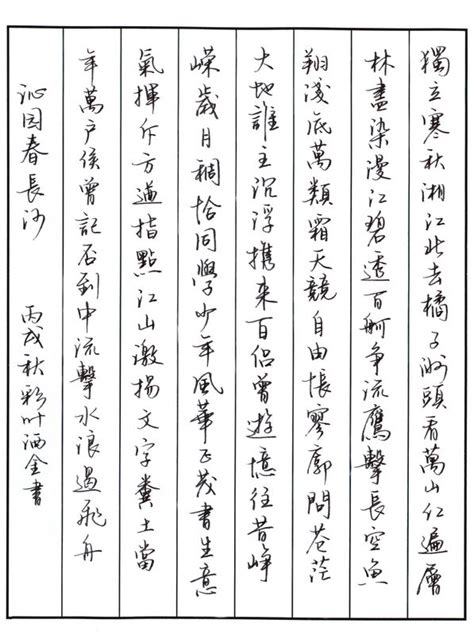 獨立寒秋湘江北去橘子洲頭看萬山红遍層
林盡染漫江碧透百舸争流鷹擊長空魚
翔淺底萬類霜天競自由悵寥廓問苍茫
大地誰主沉浮携来百侣曾遊憶往昔峥
嶸歲月稠恰同學少年風華正茂書生意
氣揮斥方遒指點江山激揚文字糞土當
年萬户侯曾記否到中流擊水浪遏飛舟
沁园春長沙 丙戌秋彩叶洒金書